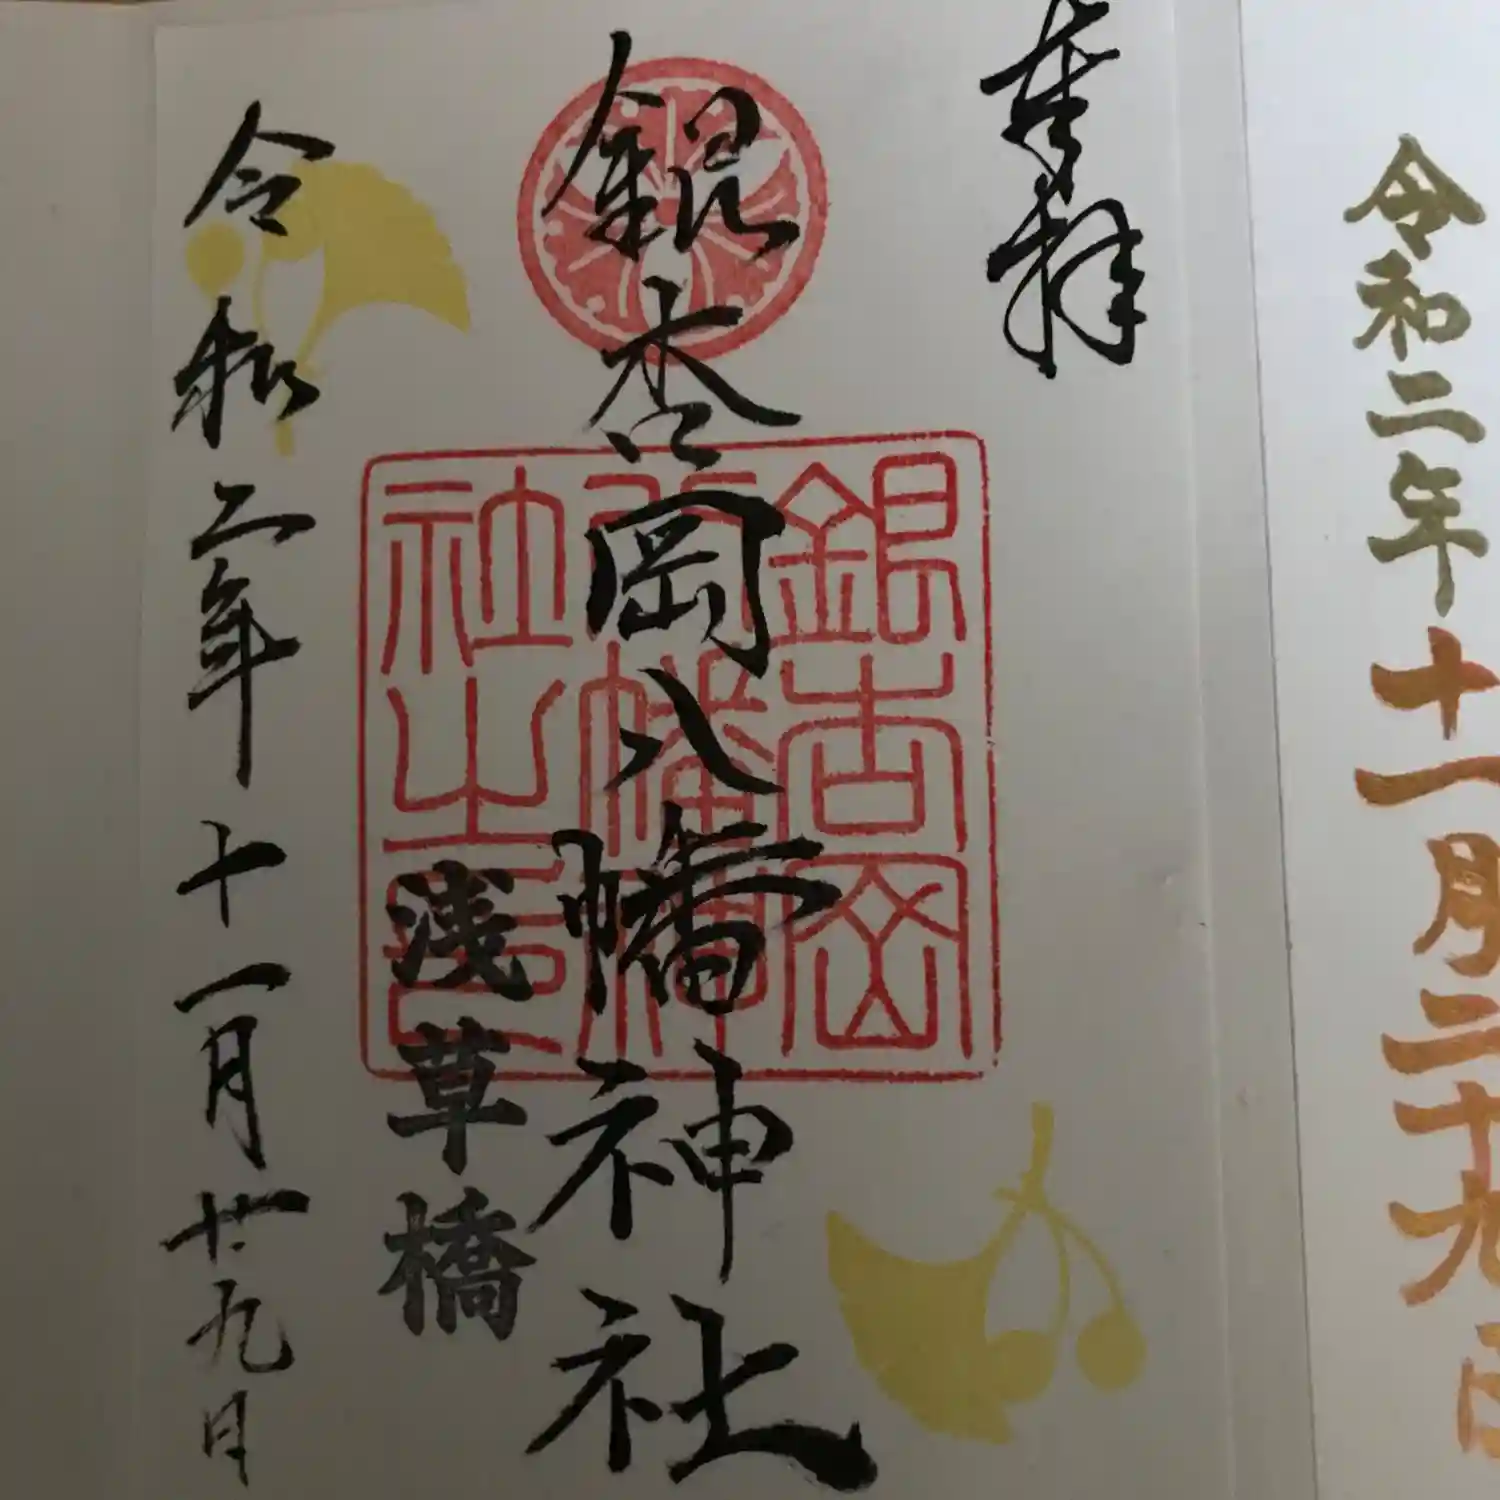 令和二年
十一月二十九日
奉拝
銀杏岡八幡神社
銀杏岡
八幡神
社之印
浅草橋
令和二年十一月廿九日